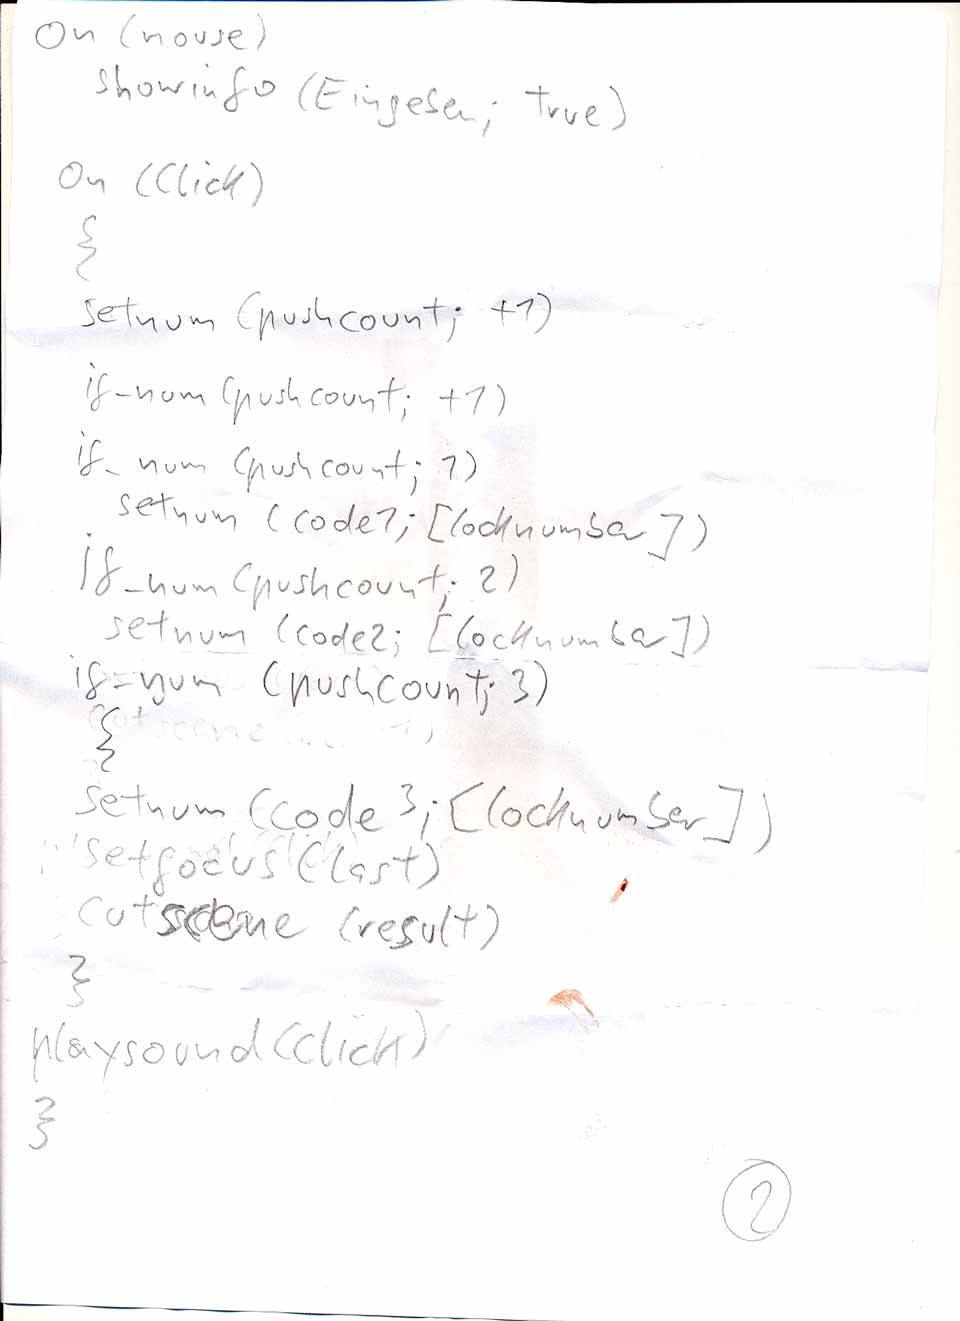 On (mouse)
showinfo (Eingeben; true)
On (Click)
{
setnum (pushcount; +1)
if_num (pushcount; +1)
if_num (pushcount; 1)
setnum (code1; [locknumber])
if_num (pushcount; 2)
setnum (code2; [locknumber])
if_num (pushcount; 3)
{
setnum (code3; [locknumber])
setfocus (last)
cutscene (result)
}
playsound (Click)
}
2